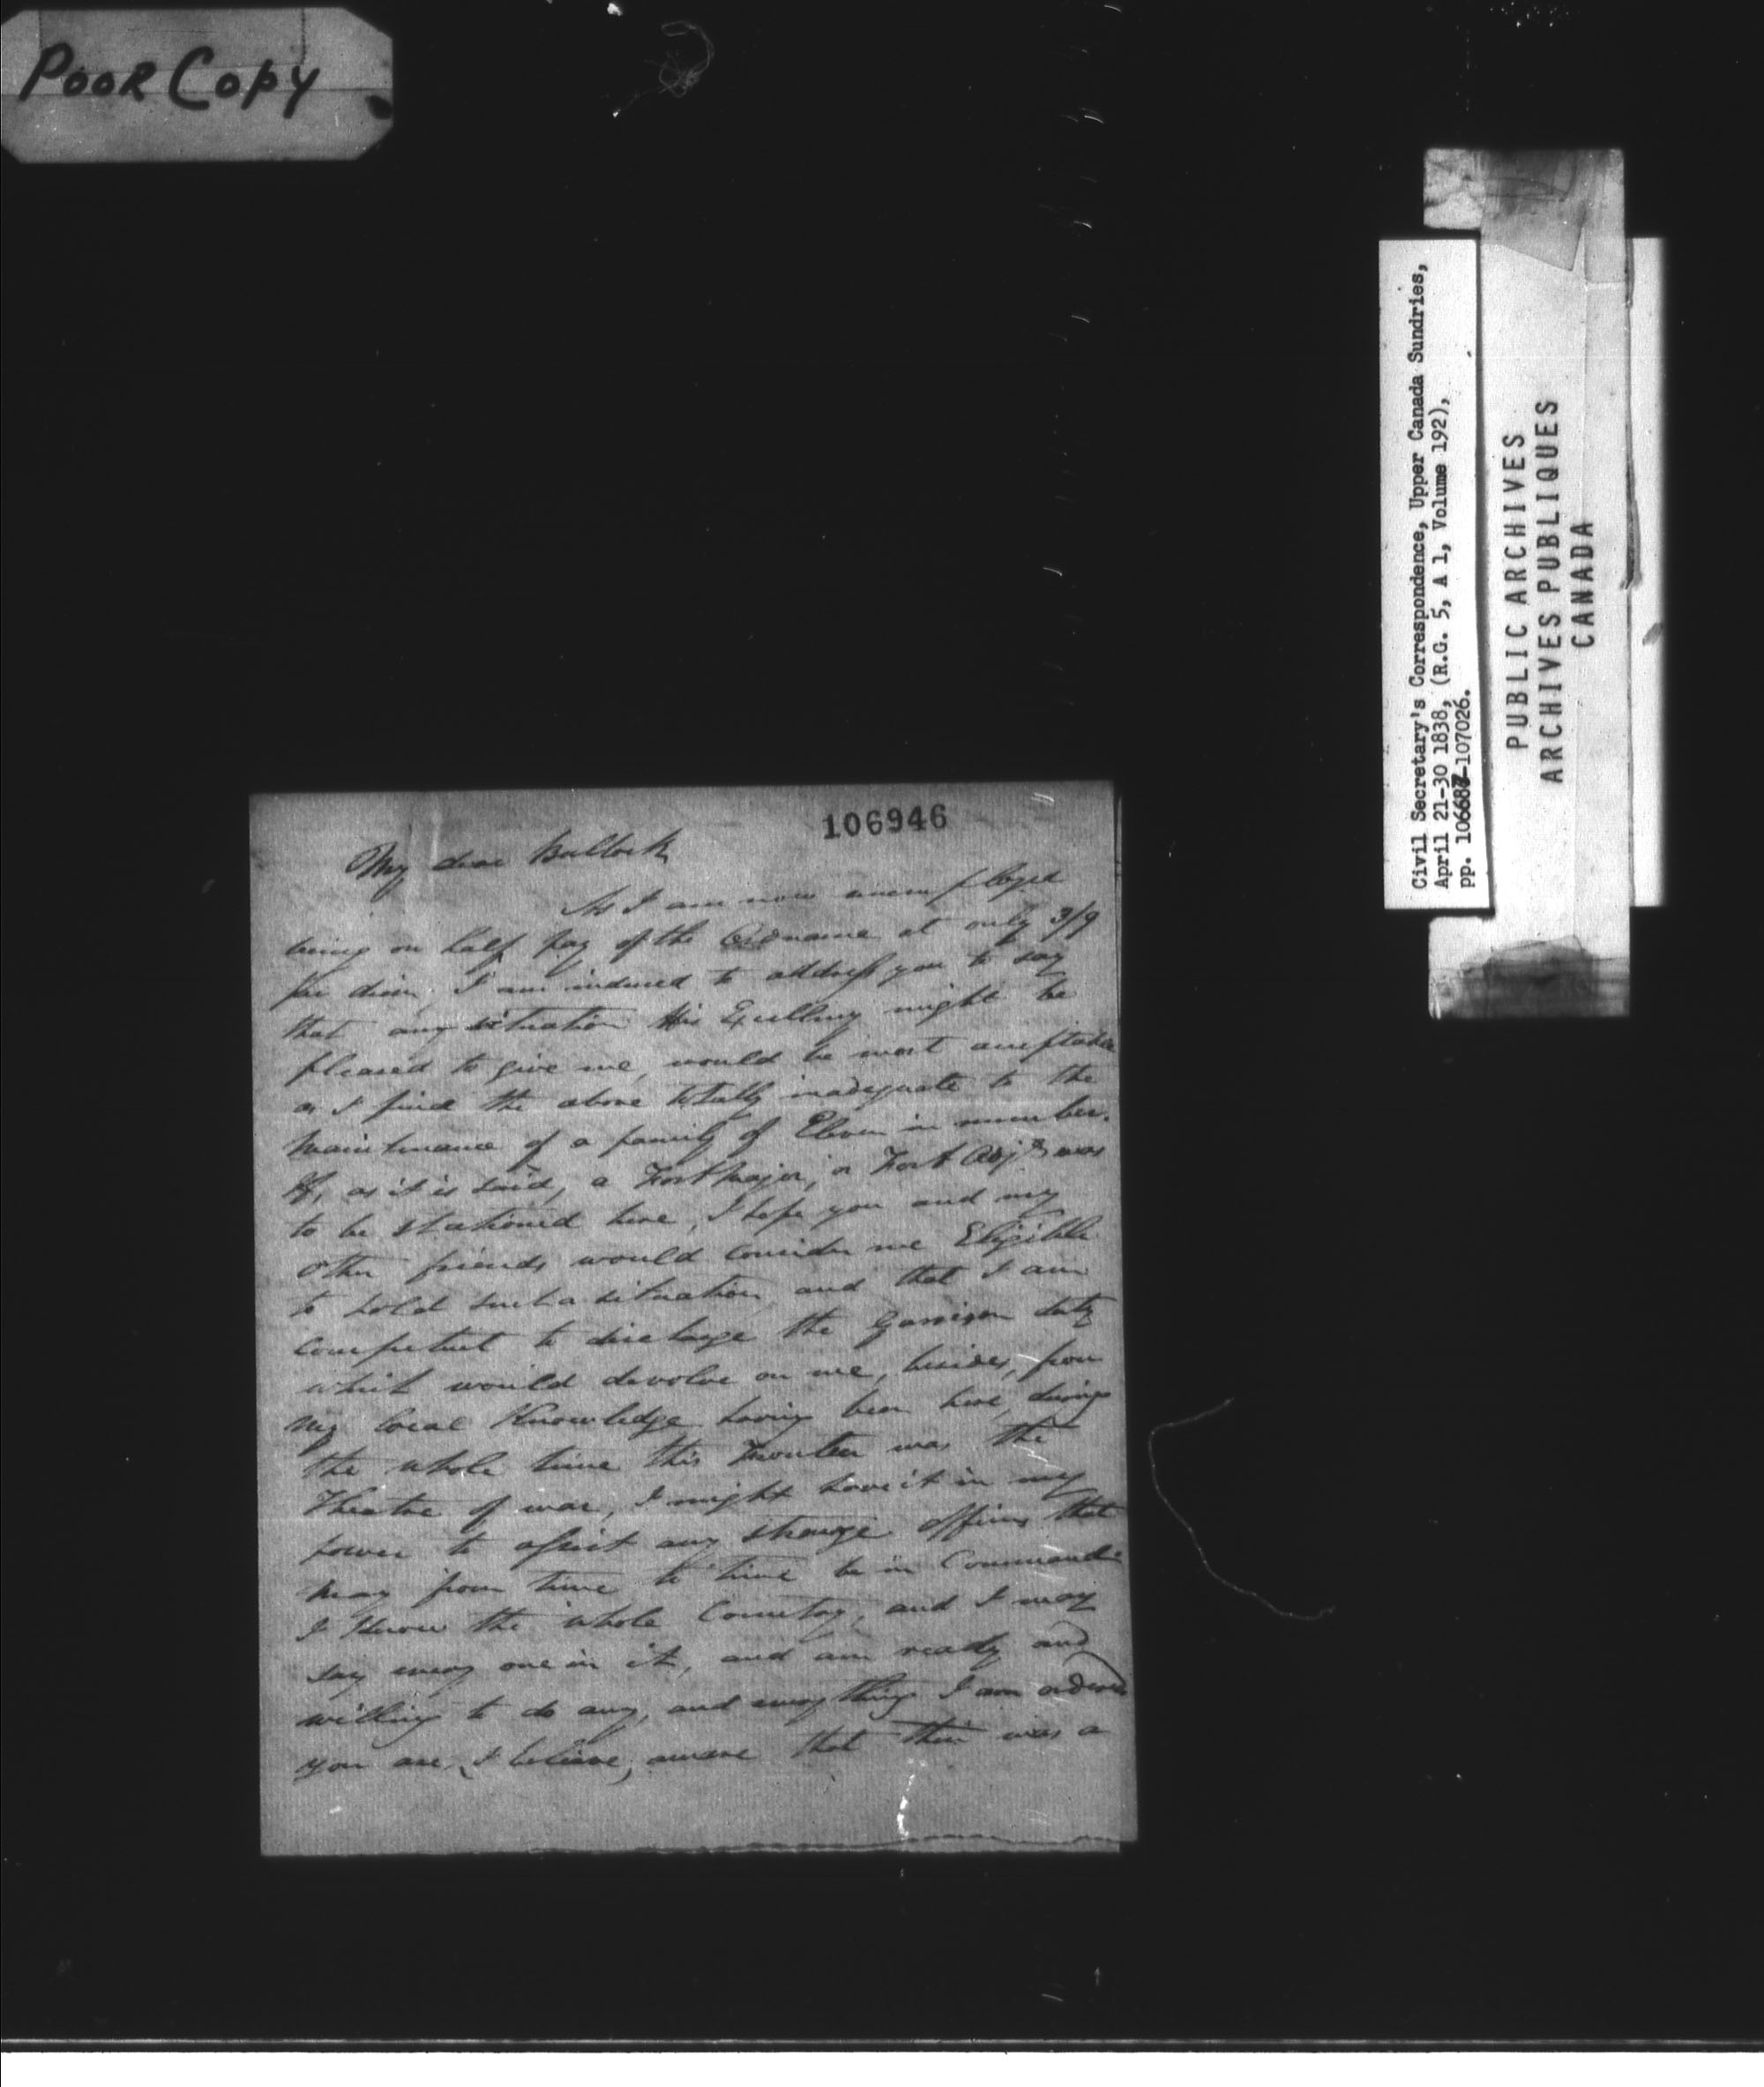 Poor Copy
106946
My dear Bullock
As I am now unemployed
being on half pay of the Ordnance at only 3/9
per diem, I am induced to address you to say
that any situation His Excellency might be
pleased to give me, would be most acceptable
as I find the above totally inadequate to the
maintenance of a family of Eleven in number.
If, as it is said, a Fort Major, or Fort Adjt was
to be stationed here, I hope you and my
other friends would consider me Eligible
to hold such a situation, and that I am
competent to discharge the Garrison duty
which would devolve on me, besides, from
my local Knowledge having been here, during
the whole time this Frontier was the
Theatre of war, I might have it in my
power to assist any strange officers that
may from time to time be in Command.
I Know the whole Country, and I may
say every one in it, and am ready and
willing to do any, and every thing I am ordered
you are, I believe, aware that there was a
Civil Secretary's Correspondence, Upper Canada Sundries,
April 21-30 1838, (R.G. 5, A 1, Volume 192),
pp. 106687-107026.
PUBLIC ARCHIVES
ARCHIVES PUBLIQUES
CANADA